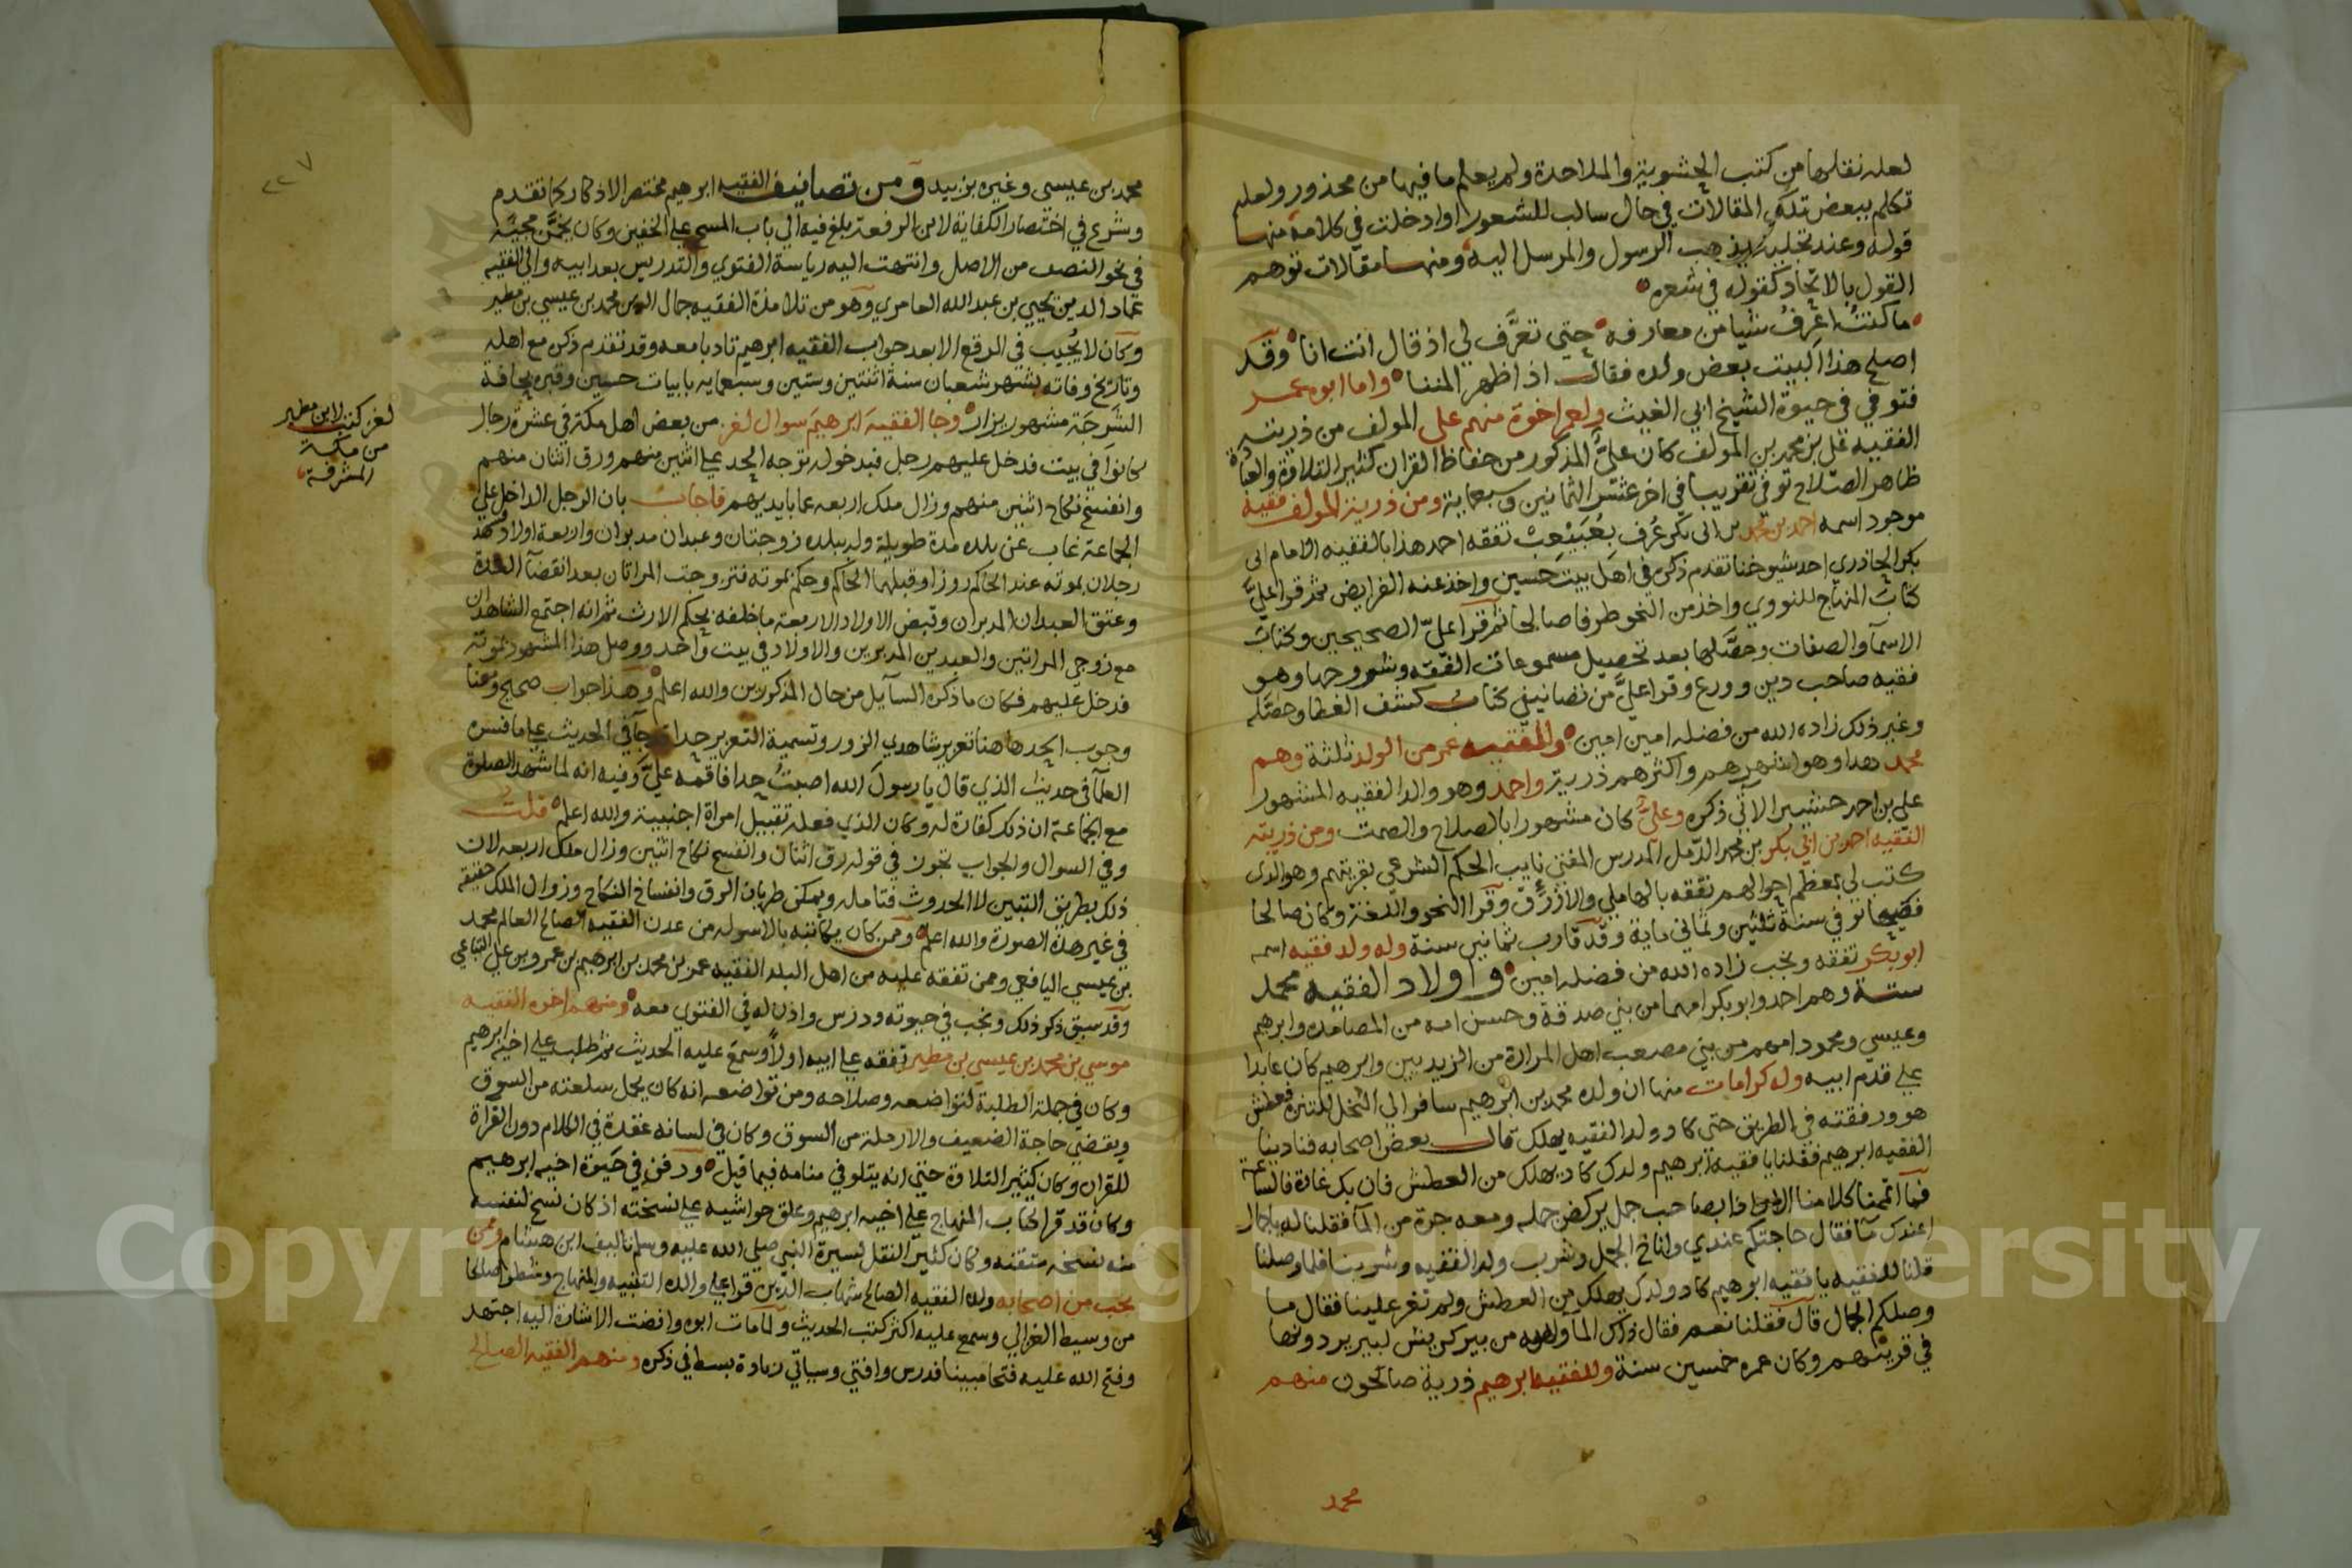 لعله نقلها من كتب الحشوية والملاحدة ولم يعلم ما فيها من محذور ولعله
تكلم ببعض تلك المقالات في حال سالب للشعور او ادخلت في كلامه منها
قوله وعند تجليه يذهب الرسول والمرسل اليه ومنها مقالات توهم
القول بالاتحاد كقوله في شعره
ما كنت اعرف شيا من معارفه حتى تعرَّف لي اذ قال انت انا وقد
اصلح هذا البيت بعض ولده فقال اذ اظهر المننا واما ابو عمر
فتوفي في حيوة الشيخ ابي الغيث ولعمر اخوة منهم علي المولف من ذريته
الفقيه علي بن محمد بن المولف كان عليٌّ المذكور من حفاظ القران كثير التلاوة والعبادة
ظاهر الصلاح توفي تقريبا في اخر عشر الثمانين وسبعماية ومن ذرية المولف فقيه
موجود اسمه احمد بن محمد بن ابي بكر عُرف تفقه احمد هذا بالفقيه الامام ابي
بكر الحادري احد شيوخنا تقدم ذكره في اهل بيت حسين واخذ عنه الفرايض ثم قرا عليَّ
كتاب المنهاج للنووي واخذ من النحو طرفا صالحا ثم قرا عليَّ الصحيحين وكتاب
الاسما والصفات وحصَّلها بعد تحصيل مسموعات الفقه وشروحها وهو
فقيه صاحب دين وورع وقرا عليَّ من تصانيفي كتاب كشف الغطا وحصَّله
وغير ذلك زاده الله من فضله امين امين وللفقيه عمر من الولد ثلثة وهم
محمد هذا وهو اشهرهم واكثرهم ذرية واحمد وهو والد الفقيه المشهور
علي بن احمد حشيبر الاتي ذكره وعليٌّ كان مشهورا بالصلاح والصمت ومن ذريته
الفقيه احمد بن ابي بكر بن محمد المدرس المفتي نايب الحكم الشرعي بقريتهم وهو الذي
كتب لي بمعظم احوالهم تفقه بالهاملي والازرق وقرا النحو واللغة وكان صالحا
فقيها توفي سنة ثلثين وثماني ماية وقد قارب ثمانين سنة وله ولد فقيه اسمه
ابو بكر تفقه ونجب زاده الله من فضله امين واولاد الفقيه محمد
ستة وهم احمد وابو بكر امهما من بني صدقة وحسن امه من وابرهيم
وعيسى ومحمود امهم من بني مصعب اهل المرارة من الزيديين وابرهيم كان عابدا
على قدم ابيه وله كرامات منها ان ولده محمد بن ابرهيم سافر الى النخل للتنزه فعطش
هو ورفقته في الطريق حتى كاد ولد الفقيه يهلك قال بعض اصحابه فنادينا
الفقيه ابرهيم فقلنا يا فقيه ابرهيم ولدك كاد يهلك من العطش فان بك غاثة فالساعة
فما اتممنا كلامنا الا واذا بصاحب جمل يركض جمله ومعه جرة من الما فقلنا له يا جمال
اعندك ما فقال حاجتكم عندي واناخ الجمل وشرب ولد الفقيه وشربنا فلما وصلنا
قلنا للفقيه يا فقيه ابرهيم كاد ولدك يهلك من العطش ولم تغر علينا فقال ما
وصلكم الجمال قال فقلنا نعم فقال ذلك الما من بير كريش لبير يردونها
في قريتهم وكان عمره خمسين سنة وللفقيه ابرهيم ذرية صالحون منهم
محمد
٢٢٧
محمد بن عيسى وغيره بزبيد ومن تصانيف الفقيه ابرهيم مختصر الاذكار كما تقدم
وشرع في اختصار الكفاية لابن الرفعة بلغ فيه الى باب المسح على الخفين وكان مجيه
في نحو النصف من الاصل وانتهت اليه رياسة الفتوى والتدريس بعد ابيه والى الفقيه
عماد الدين يحيى بن عبد الله العامري وهو من تلامذة الفقيه جمال الدين محمد بن عيسى بن مطير
وكان لا يُجيب في الرقع الا بعد جواب الفقيه ابرهيم تادبا معه وقد تقدم ذكره مع اهله
وتاريخ وفاته بشهر شعبان سنة اثنتين وستين وسبعمايه بابيات حسين وقبره بحافة
الشَرجَة مشهور يزار وجا الفقيهَ ابرهيمَ سوال لغز من بعض اهل مكة في عشرة رجال
كانوا في بيت فدخل عليهم رجل فبدخوله توجه الحد على اثنين منهم ورق اثنان منهم
وانفسخ نكاح اثنين منهم وزال ملك اربعه عما بايديهم فاجاب بان الرجل الداخل على
الجماعة غاب عن بلده مدة طويلة وله ببلده زوجتان وعبدان مدبران واربعة اولاد وشهد
رجلان بموته عند الحاكم زورا وقبلهما الحاكم وحكم بموته فتزوجت المراتان بعد انقضا العدة
وعتق العبدان المدبران وقبض الاولاد الاربعة ما خلفه بحكم الارث ثم انه اجتمع الشاهدان
مع زوجي المراتين والعبدين المدبرين والاولاد في بيت واحد ووصل هذا المشهود بموته
فدخل عليهم فكان ما ذكره السآيل من حال المذكورين والله اعلم وهذا جواب صحيح ومعنا
وجوب الحد هاهنا تعزير شاهدي الزور وتسمية التعزير حدا جآ في الحديث على ما فسره
العلمآ في حديث الذي قال يا رسول الله اصبتُ حدا فاقمه عليَّ وفيه انه لما شهد الصلوة
مع الجماعة ان ذلك كفارة له وكان الذي فعله تقبيل امراة اجنبية والله اعلم قلت
وفي السوال والجواب تجوز في قوله رق اثنان وانفسخ نكاح اثنين وزال ملك اربعه لان
ذلك بطريق التبين لا الحدوث فتامله ويمكن طريان الرق وانفساخ النكاح وزوال الملك حقيقة
في غير هذه الصورة والله اعلم وممن كان يكاتبه بالاسوله من عدن الفقيه الصالح العالم محمد
بن عيسى اليافعي وممن تفقه عليه من اهل البلد الفقيه عمر بن محمد بن ابرهيم بن عمرو بن علي التباعي
وقد سبق ذكر ذلك ونجب في حيوته ودرس واذن له في الفتوى معه ومنهم اخوه الفقيه
موسى بن محمد بن عيسى بن مطير تفقه على ابيه اولاً وسمع عليه الحديث ثم طلب على اخيه ابرهيم
وكان في جملة الطلبة لتواضعه وصلاحه ومن تواضعه انه كان يحمل سلعته من السوق
ويقضي حاجة الضعيف والارملة من السوق وكان في لسانه عقدة في الكلام دون القراة
للقران وكان كثير التلاوة حتى انه يتلو في منامه فيما قيل ودفن في حيوة اخيه ابرهيم
وكان قد قرا كتاب المنهاج على اخيه ابرهيم وعلق حواشيه على نسخته اذ كان نسخ لنفسه
منه نسخه متقنه وكان كثير النقل لسيرة النبي صلى الله عليه وسلم تاليف ابن هشام وممن
نجب من اصحابه ولده الفقيه الصالح شهاب الدين قرا على والده التنبيه والمنهاج وشطرا صالحا
من وسيط الغزالي وسمع عليه اكثر كتب الحديث ولما مات ابوه وافضت الاشارة اليه اجتهد
وفتح الله عليه فتحا مبينا فدرس وافتى وسياتي زيادة بسط في ذكره ومنهم الفقيه الصالح
لغز كتب لابن مطير
من مكة
المشرفة
Copyright © King Saud University